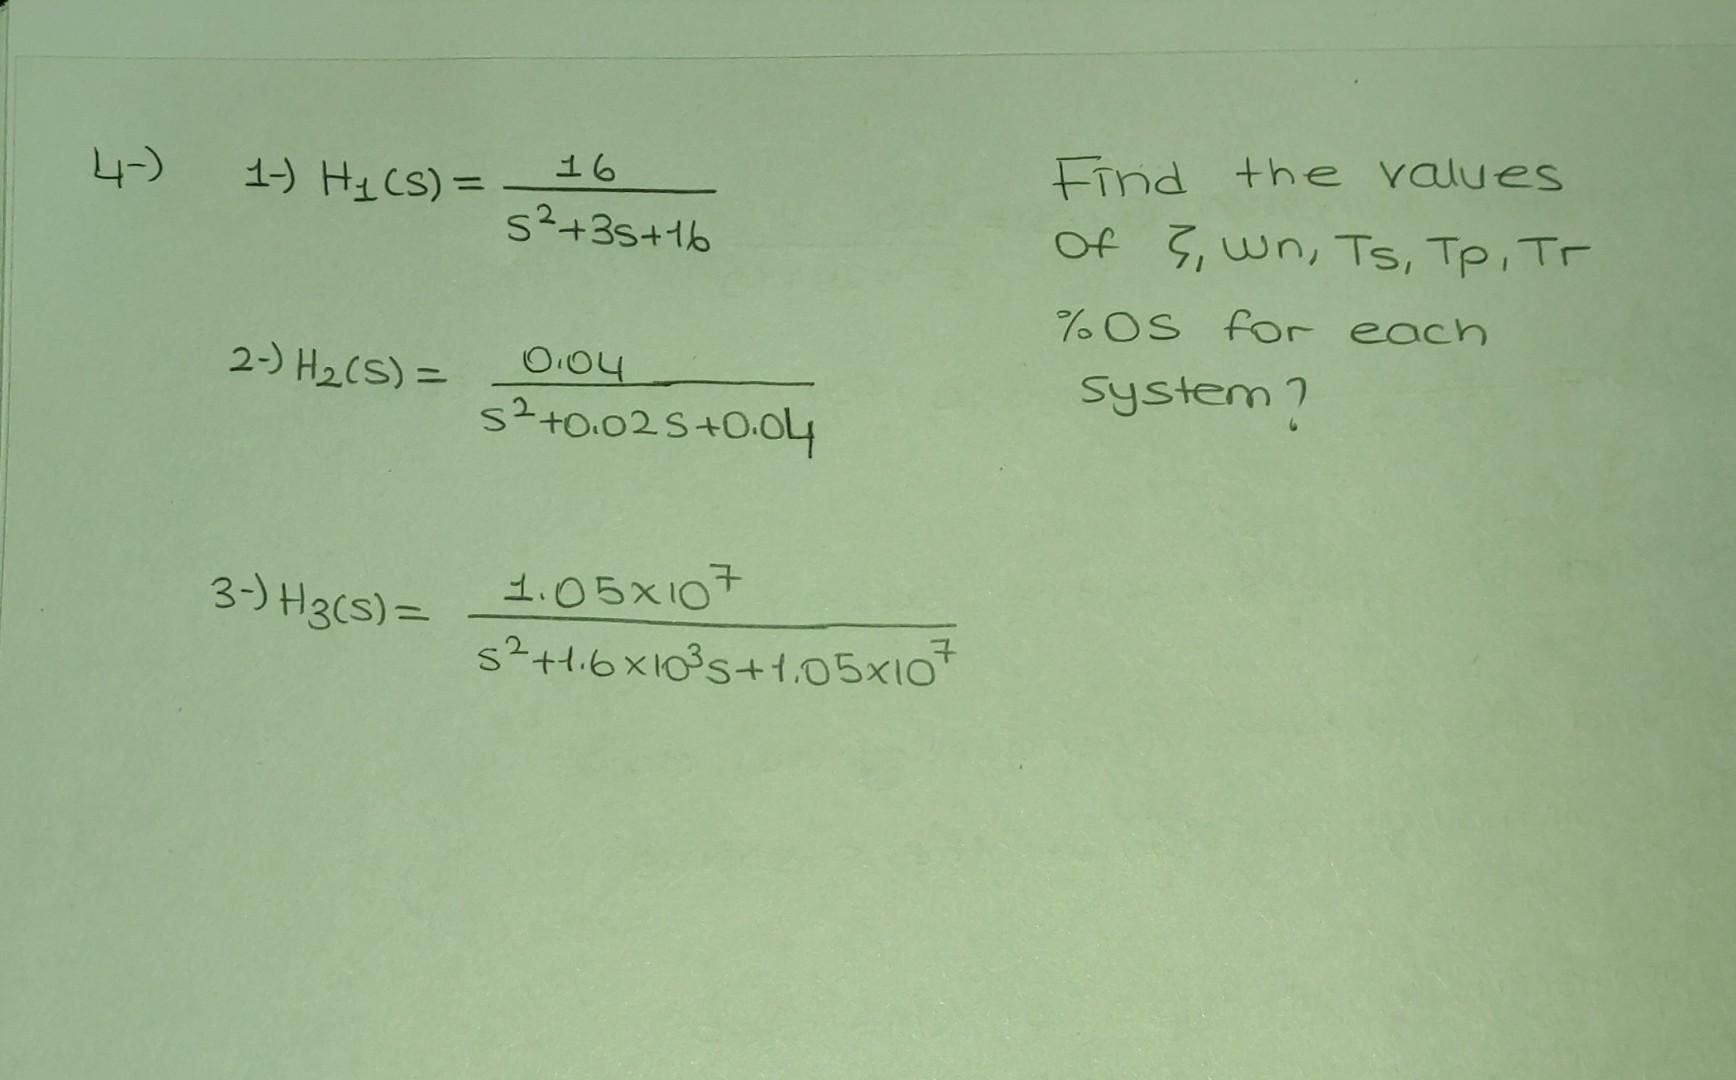 4-) 1-) H₁(s) = 16 / s²+3s+16
2-) H₂(s) = 0.04 / s²+0.02s+0.04
3-) H₃(s) = 1.05x10⁷ / s²+1.6x10³s+1.05x10⁷
Find the values
Of ζ, wn, Ts, Tp, Tr
%OS for each
system?